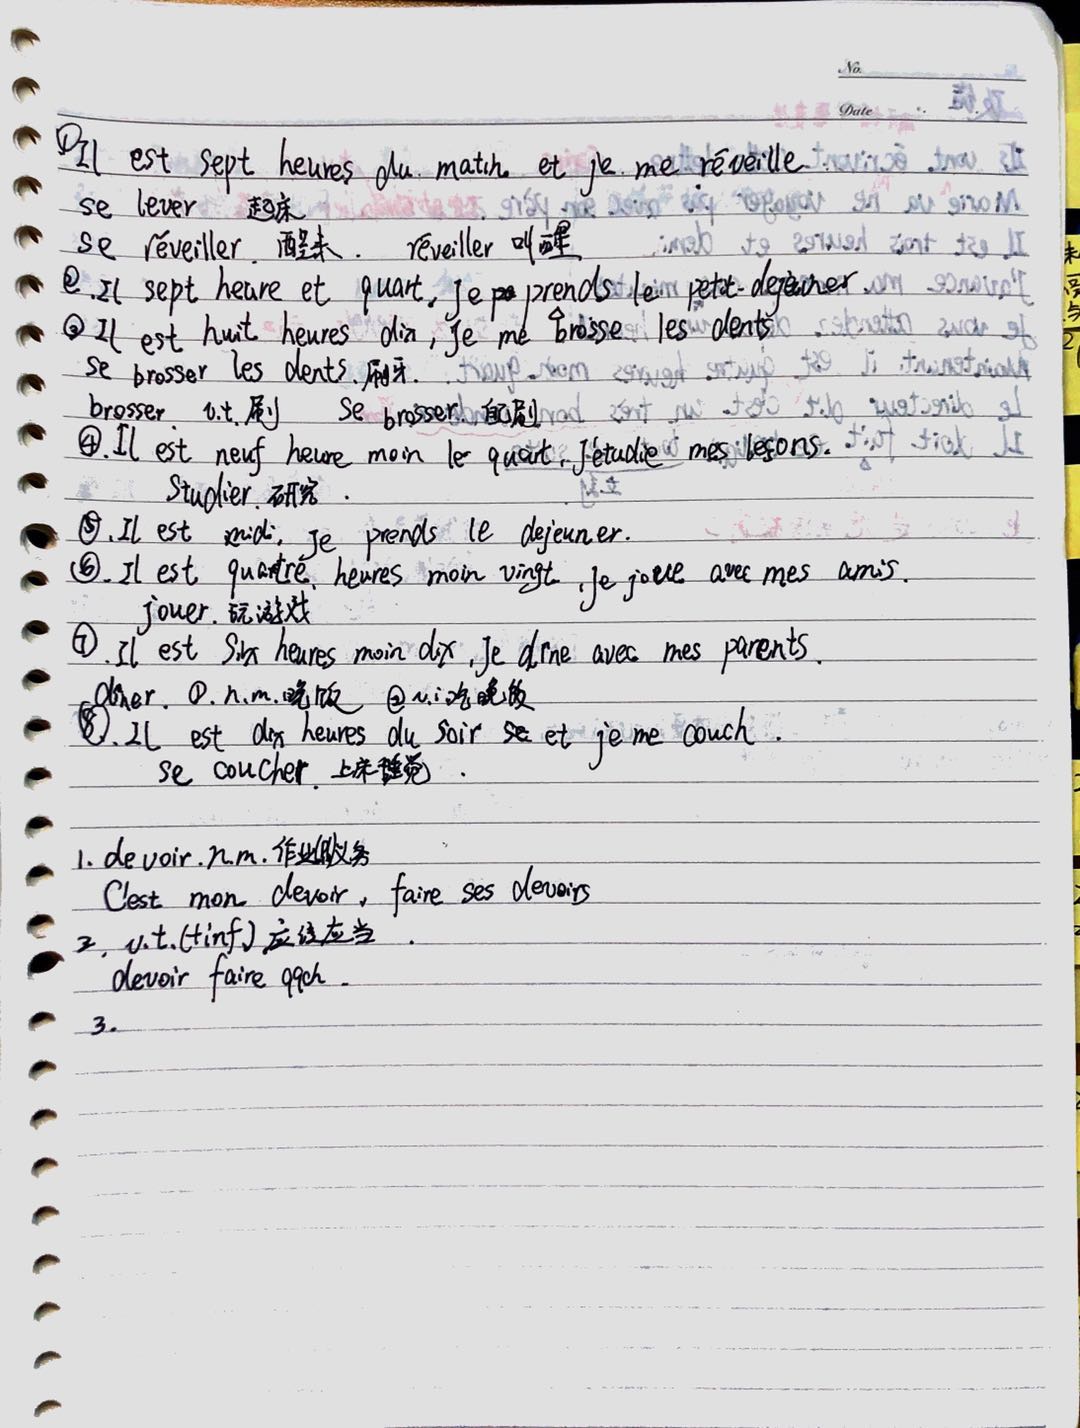 No.
Date
①Il est sept heures du matin et je me réveille
se lever 起床
se réveiller 醒来. réveiller 叫醒
②.Il sept heure et quart, je prends le petit-dejeuner
③Il est huit heures dix, je me brosse les dents
se brosser les dents 刷牙.
brosser v.t.刷 se brosser 自刷
④.Il est neuf heure moin le quart, J'étudie mes leçons.
Studier. 研究.
⑤.Il est midi, je prends le dejeuner.
⑥.Il est quatre heures moin vingt, je joue avec mes amis.
jouer. 玩游戏
⑦.Il est Six heures moin dix, je dîne avec mes parents.
dîner. ①.n.m.晚饭 ②v.i.吃晚饭
⑧.Il est dix heures du soir et je me couch.
se coucher. 上床睡觉.
1. devoir.n.m.作业
C'est mon devoir, faire ses devoirs
2. v.t.(+inf) 应该应当.
devoir faire qqch.
3.